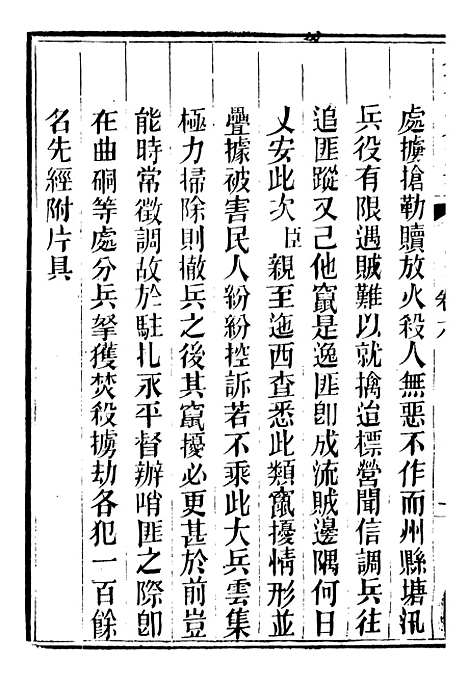 處擄搶勒贖放火殺人無惡不作而州縣塘汛
兵役有限遇賊難以就擒迨標營聞信調兵往
追匪蹤又已他竄是逸匪卽成流賊邊隅何日
乂安此次臣親至迤西查悉此類竄擾情形並
疊據被害民人紛紛控訴若不乘此大兵雲集
極力掃除則撤兵之後其竄擾必更甚於前豈
能時常徵調故於駐扎永平督辦哨匪之際卽
在曲硐等處分兵拏獲焚殺擄劫各犯一百餘
名先經附片具